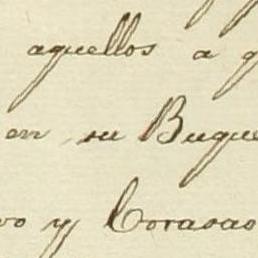 aquellos a q
en su Buque
vo y Corasao